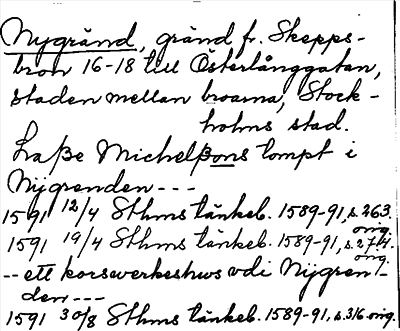 Nygränd, gränd fr. Skepps-
bron 16-18 till Österlånggatan,
staden mellan broarna, Stock-
holms stad.
Laße Michelßons tompt i
Nÿgrenden ---
1591 12/4 Sthms tänkeb. 1589-91, s. 263.
orig.
1591 19/4 Sthms tänkeb. 1589-91, s. 274.
orig.
-- ett korsverkeshws vdi Nÿgren-
den ---
1591 30/8 Sthms tänkeb. 1589-91, s. 316 orig.